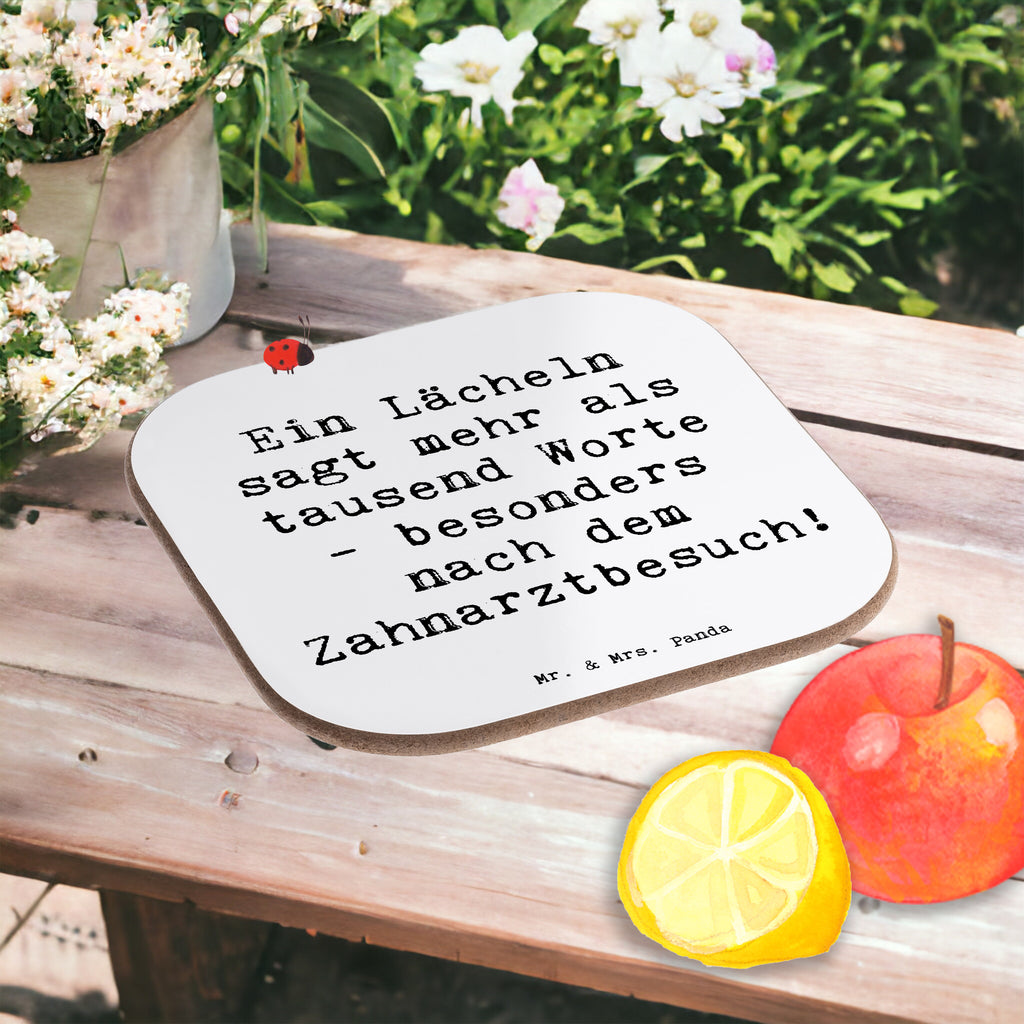 Ein Lächeln
sagt mehr als
tausend Worte
- besonders
nach dem
Zahnarztbesuch!
Mr. & Mrs. Panda